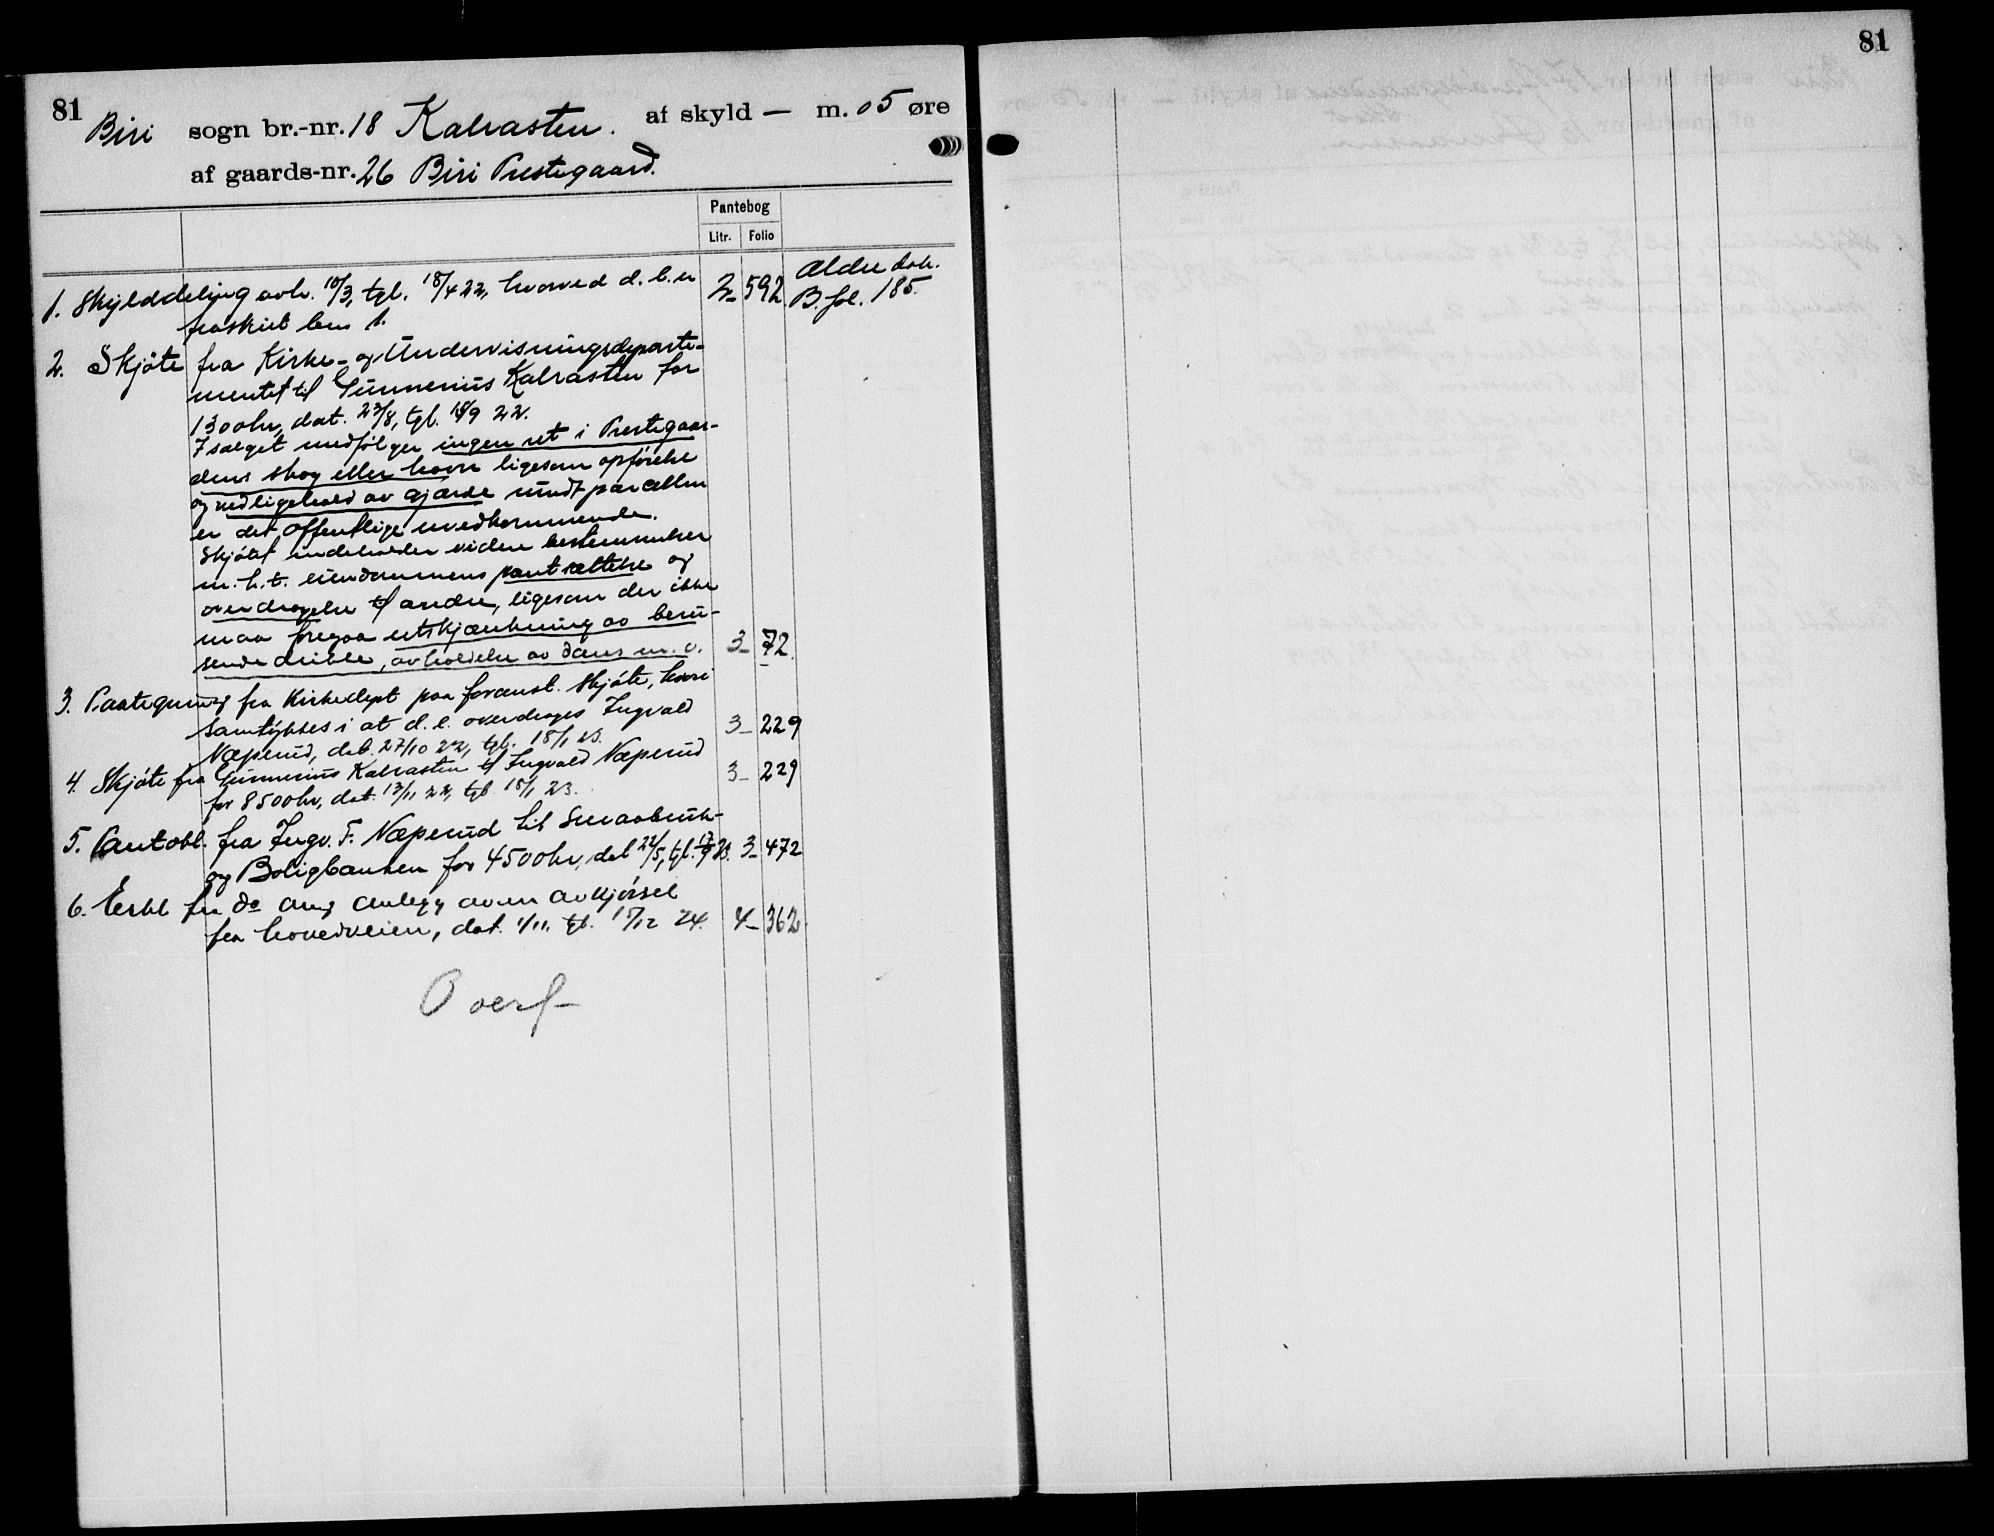 81
81
Biri sogn br.-nr. 18 Kalrasten. af skyld — m. 05 øre
af gaards-nr. 26 Biri Prestegaard.
Pantebog
Litr. Folio
1. Skylddeling avh. 10/3, tgl. 18/4 22, hvorved d. b. er 2 592 Ældre dok.
fraskilt bnr 1. B. fol. 185.
2. Skjøte fra Kirke- og Undervisningsdeparte-
mentet til Gunnerius Kalrasten for
1300 kr, dat. 23/8, tgl. 18/9 22.
I salget medfølger ingen ret i Prestegaar-
dens skog eller havn ligesom opførelse
og vedligehold av gjærde rundt parcellen
er det offentlige uvedkommende.
Skjøtet indeholder videre bestemmelser
m. h. t. eiendommens pantsættelse og
overdragelse til andre, ligesom der ikke
maa foregaa utskjænkning av beru-
sende drikke, avholdelse av dans m. v. 3 72
3. Paategning fra Kirkedept paa foranst. skjøte, hvori
samtykkes i at d. e. overdrages Ingvald
Næperud, dat. 27/10 22, tgl. 18/1 23. 3 229
4. Skjøte fra Gunnerius Kalrasten til Ingvald Næperud
for 8500 kr, dat. 13/11 22, tgl. 18/1 23. 3 229
5. Pantobl. fra Ingv. F. Næperud til Smaabruk-
og Boligbanken for 4500 kr, dat 22/5, tgl. 17/9 23. 3 472
6. Erkl fra do ang anlegg av en avkjørsel
fra hovedveien, dat. 1/11, tgl. 15/12 24. 4 362
Overf